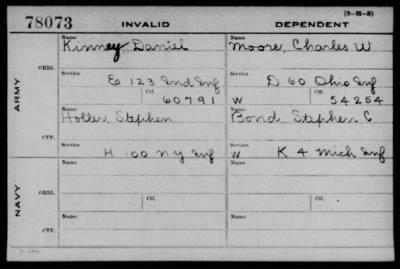 (3-H-8)
78073 INVALID DEPENDENT
Name Name
Kinney Daniel Moore, Charles W
ORIG.
Service Service
E 123 Ind Inf D 60 Ohio Inf
Ctf. Ctf.
60791 W 54254
ARMY
Name Name
Holler, Stephen Bond, Stephen C
CTF.
Service Service
H 100 N Y Inf W K 4 Mich Inf
Name Name
ORIG.
Service Ctf. Service Ctf.
NAVY
Name Name
CTF.
Service Service